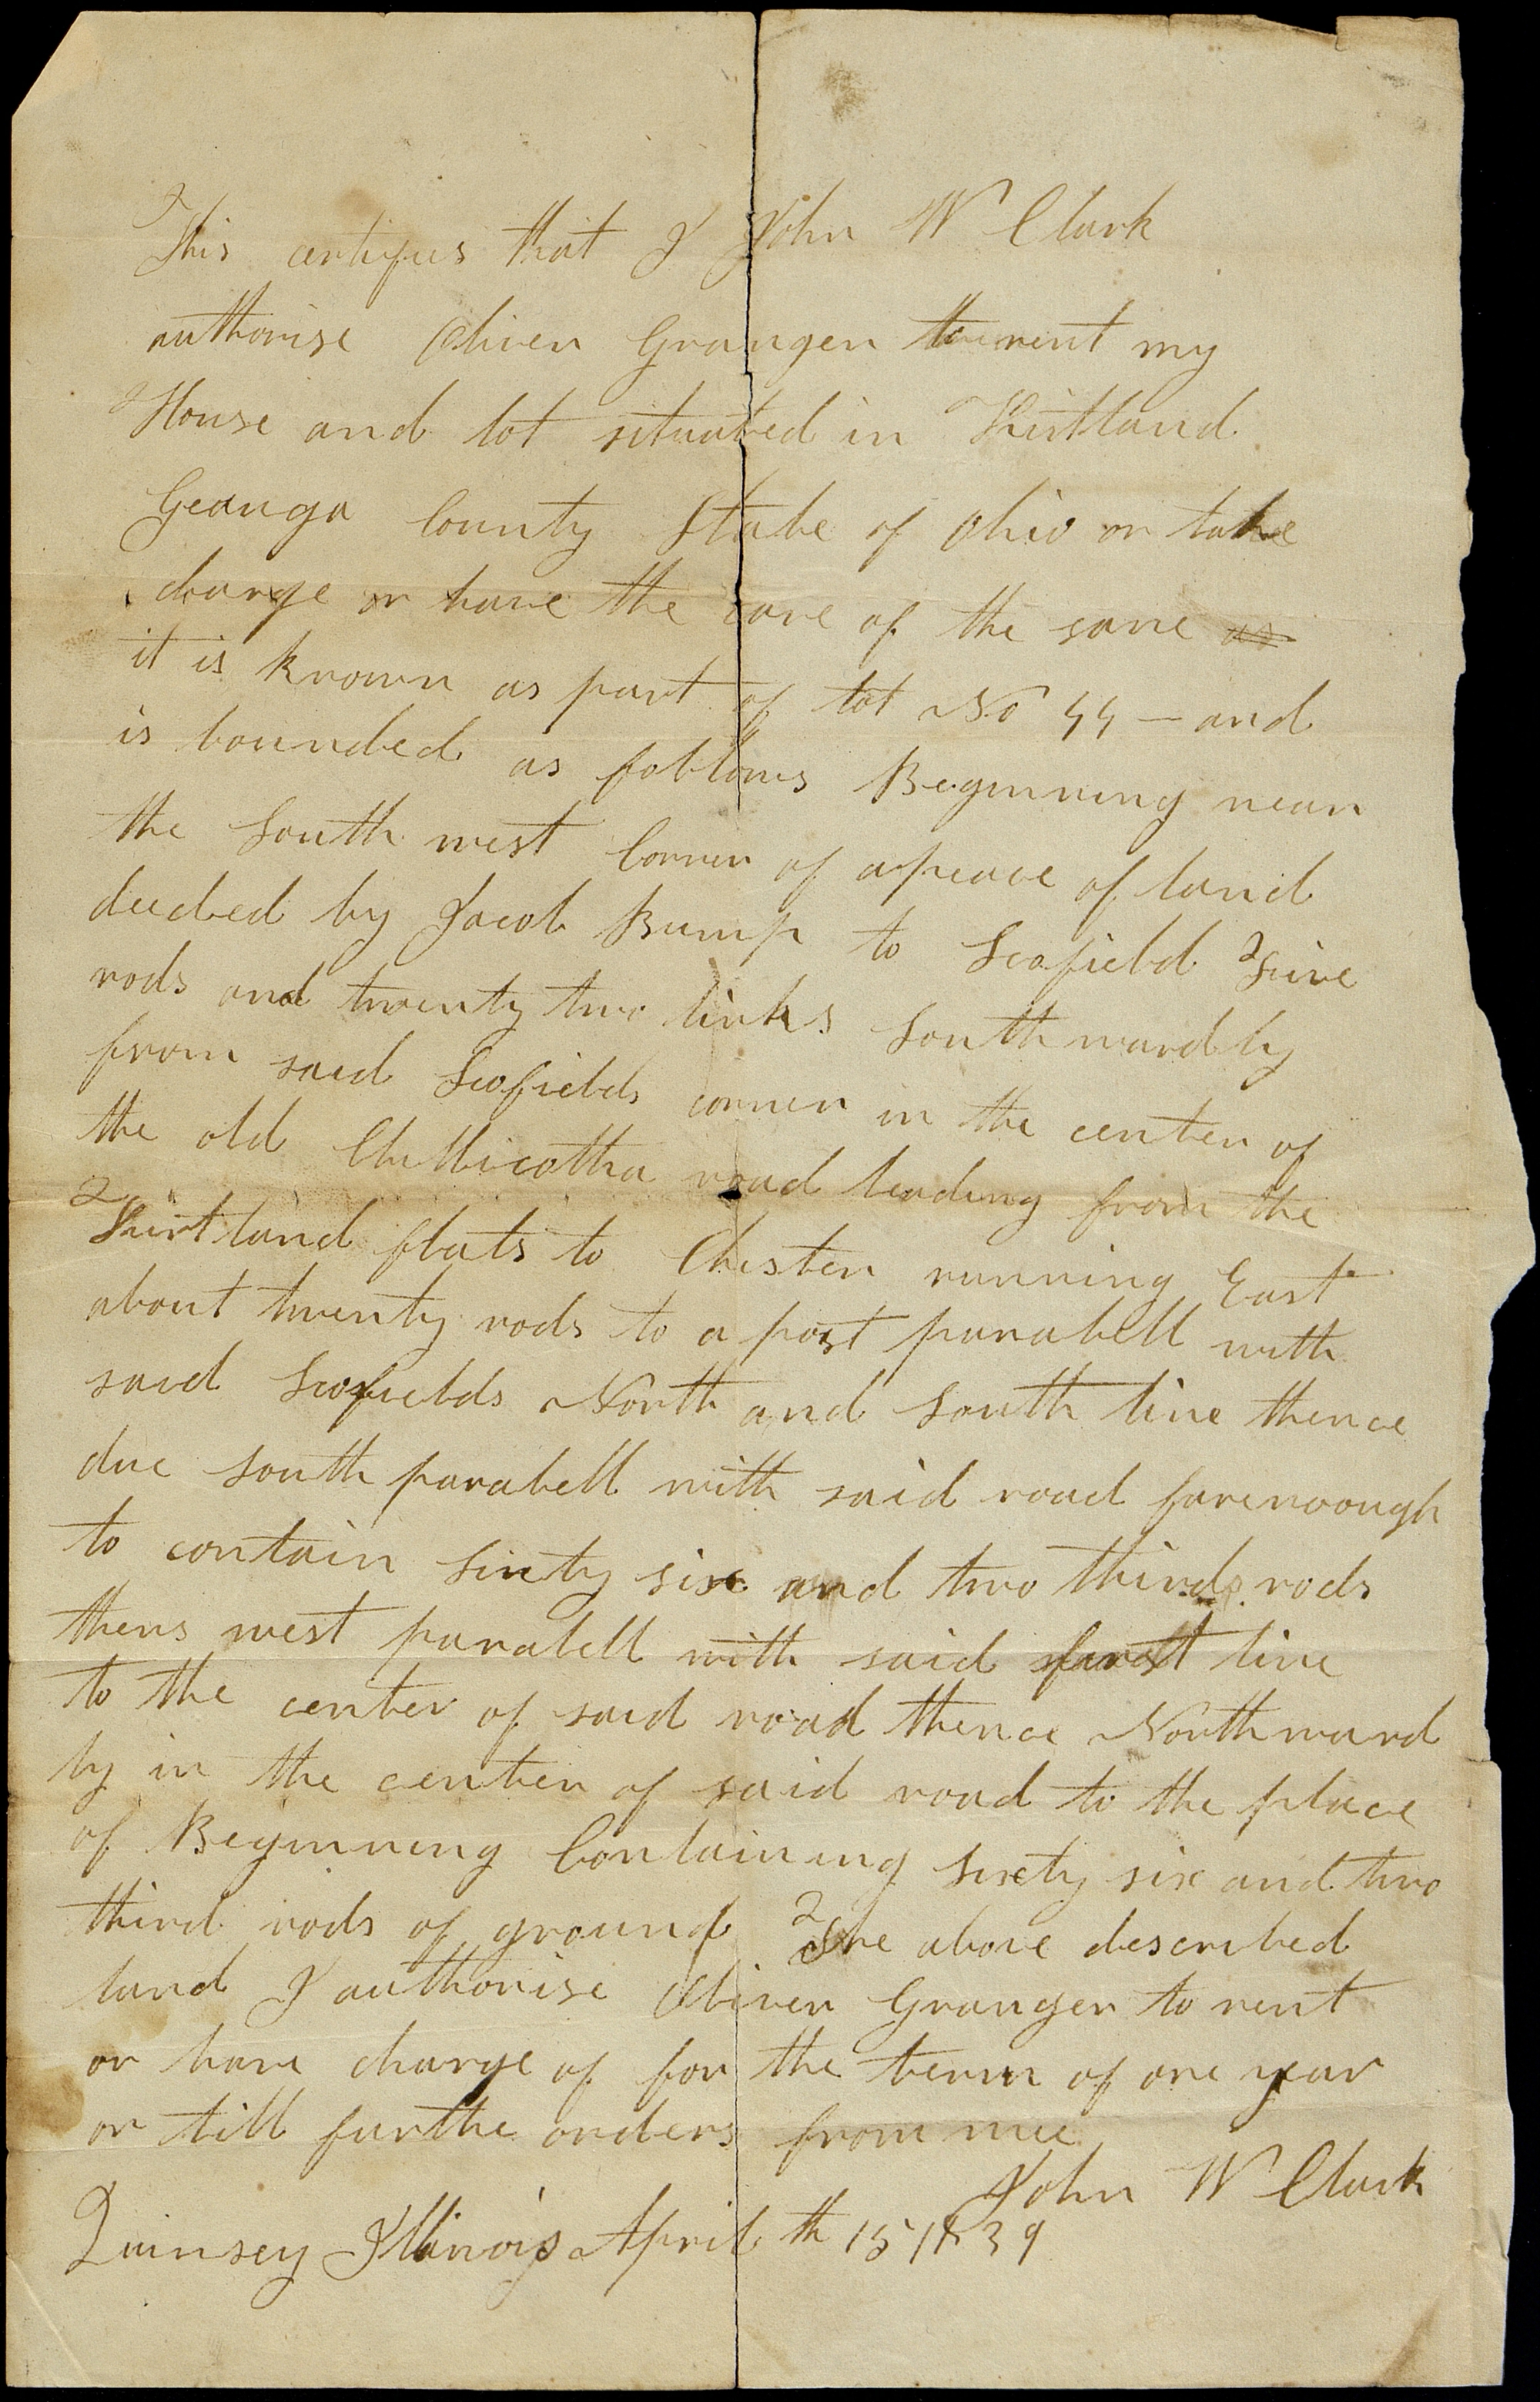 This certifies that I John W Clark
authorise Oliver Granger to rent my
House and lot situated in Kirtland
Geauga County State of Ohio or take
charge or have the care of the same as
it is known as part of lot No 44 — and
is bounded as follows Beginning near
the South west Corner of a peace of land
deeded by Jacob Bump to Scofield Five
rods and twenty two links Southwardly
from said Scofields corner in the center of
the old Chillicotha road leading from the
Kirtland flats to Chester running East
about twenty rods to a post parallell with
said Scofields North and South line thence
due South parallell with said road farenough
to contain sixty six and two thirds rods
thens west parallell with said first line
to the center of said road thence Northward
ly in the center of said road to the place
of Beginning Containing sixty six and two
third rods of ground The above described
land I authorise Oliver Granger to rent
or have charge of for the term of one year
or till furthe orders from mee
John W Clark
Quinsey Illinois April th 15 1839